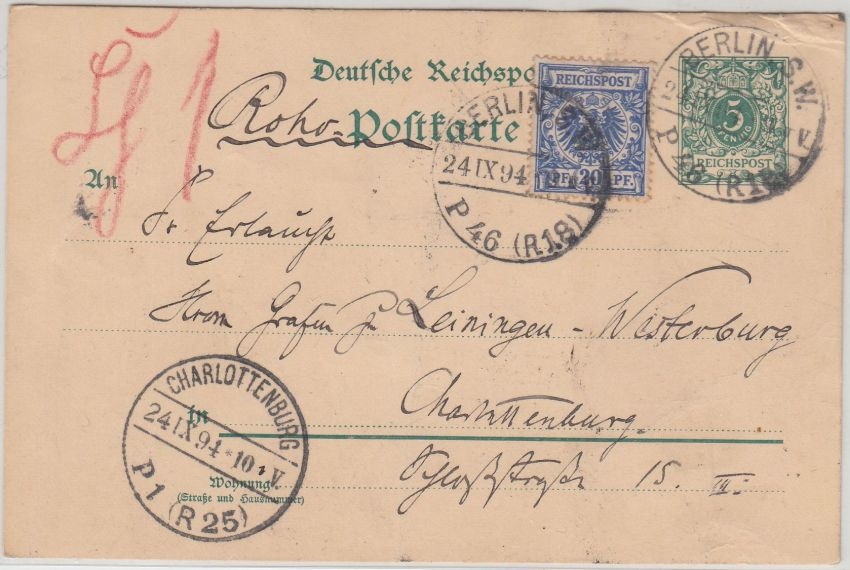 Deutsche Reichspo
Rohr-Postkarte
REICHSPOST
PF. 20 PF.
5
PFENNIG
REICHSPOST
BERLIN S.W.
P 46 (R18)
BERLIN
24 IX 94
P 46 (R18)
An
Sr Erlaucht
Herrn Grafen zu Leiningen-Westerburg
in Charlottenburg.
Wohnung
(Straße und Hausnummer)
Schloßstraße 15. III.
CHARLOTTENBURG
24 IX 94 * 10 V.
P 1 (R 25)